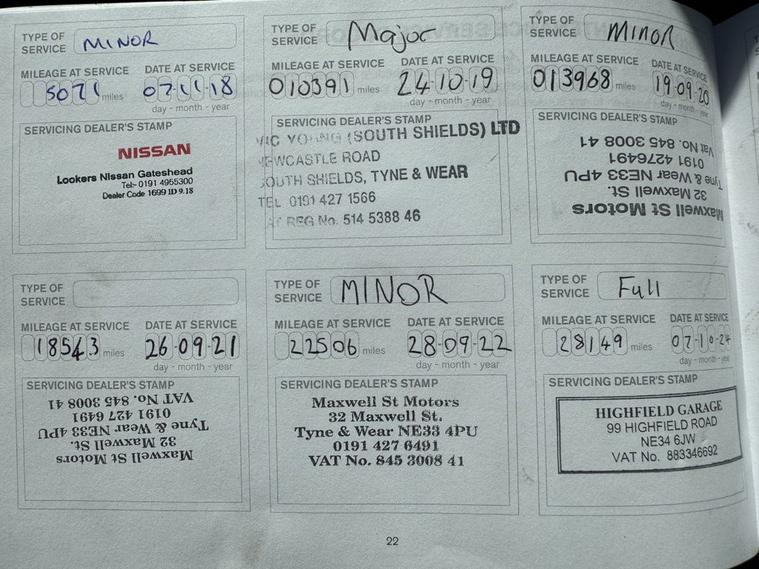 TYPE OF SERVICE MINOR
MILEAGE AT SERVICE DATE AT SERVICE
5071 miles 07-11-18
day - month - year
SERVICING DEALER'S STAMP
NISSAN
Lookers Nissan Gateshead
Tel:- 0191 4955300
Dealer Code 1699 ID 9.18
TYPE OF SERVICE Major
MILEAGE AT SERVICE DATE AT SERVICE
010391 miles 24-10-19
day - month - year
SERVICING DEALER'S STAMP
VIC YOUNG (SOUTH SHIELDS) LTD
NEWCASTLE ROAD
SOUTH SHIELDS, TYNE & WEAR
TEL 0191 427 1566
VAT REG No. 514 5388 46
TYPE OF SERVICE MINOR
MILEAGE AT SERVICE DATE AT SERVICE
013968 miles 19-09-20
day - month - year
SERVICING DEALER'S STAMP
Maxwell St Motors
32 Maxwell St.
Tyne & Wear NE33 4PU
0191 4276491
Vat No. 845 3008 41
TYPE OF SERVICE
MILEAGE AT SERVICE DATE AT SERVICE
18543 miles 26-09-21
day - month - year
SERVICING DEALER'S STAMP
Maxwell St Motors
32 Maxwell St.
Tyne & Wear NE33 4PU
0191 427 6491
VAT No. 845 3008 41
TYPE OF SERVICE MINOR
MILEAGE AT SERVICE DATE AT SERVICE
22506 miles 28-09-22
day - month - year
SERVICING DEALER'S STAMP
Maxwell St Motors
32 Maxwell St.
Tyne & Wear NE33 4PU
0191 427 6491
VAT No. 845 3008 41
TYPE OF SERVICE Full
MILEAGE AT SERVICE DATE AT SERVICE
28149 miles 07-10-24
day - month - year
SERVICING DEALER'S STAMP
HIGHFIELD GARAGE
99 HIGHFIELD ROAD
NE34 6JW
VAT No. 883346692
22